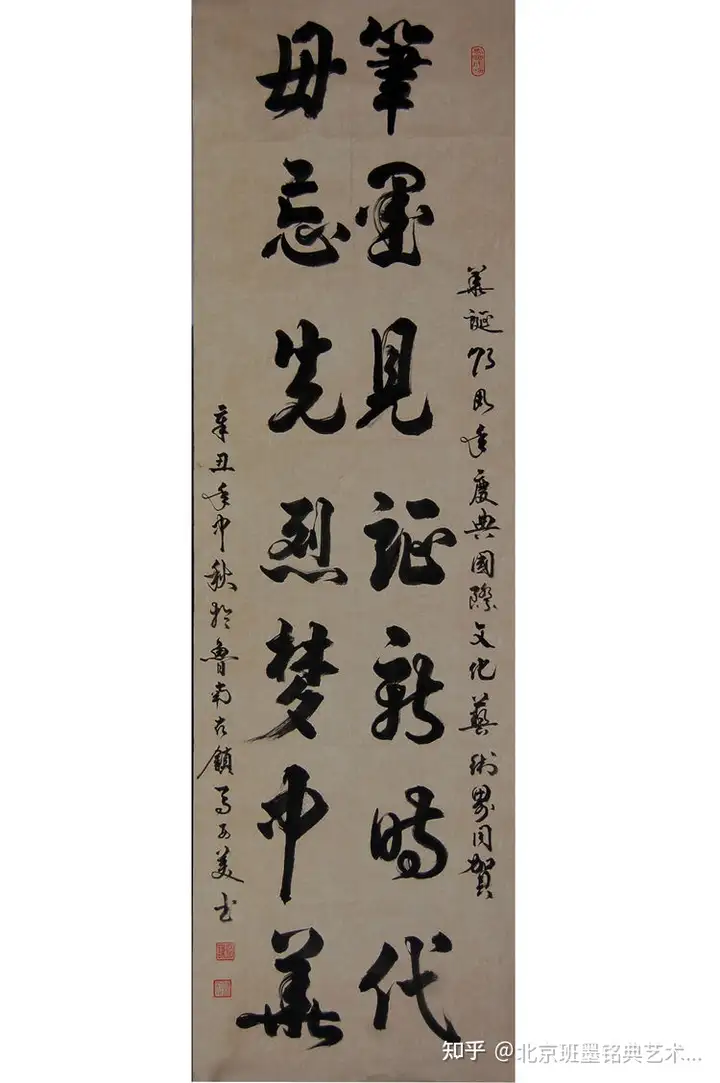 華誕周年慶典國際文化藝術界同賀
筆墨見証新時代
毋忘先烈梦中華
辛丑年中秋於魯南古鎮馬美书
知乎 @北京班墨铭典艺术...